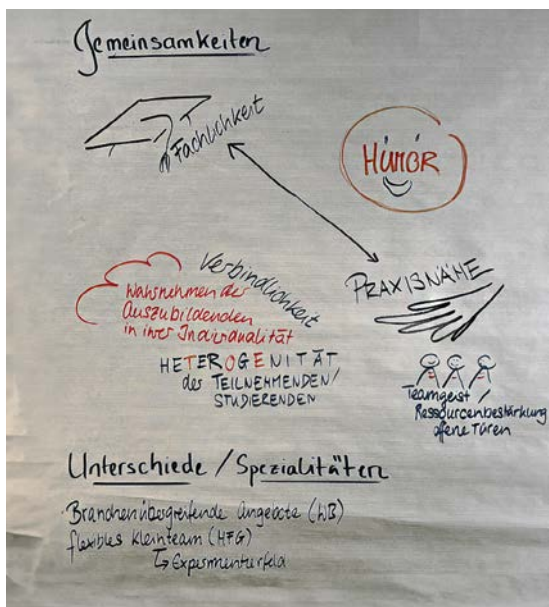 Gemeinsamkeiten
Fachlichkeit
HUMOR
Verbindlichkeit
PRAXISNÄHE
Wahrnehmen der
Auszubildenden
in ihrer Individualität
HETEROGENITÄT
des TEILNEHMENDEN/
STUDIERENDEN
Teamgeist /
Ressourcenbestärkung
offene Türen
Unterschiede / Spezialitäten
Branchenübergreifende Angebote (WB)
flexibles Kleinteam (HFG)
↳ Experimentierfeld